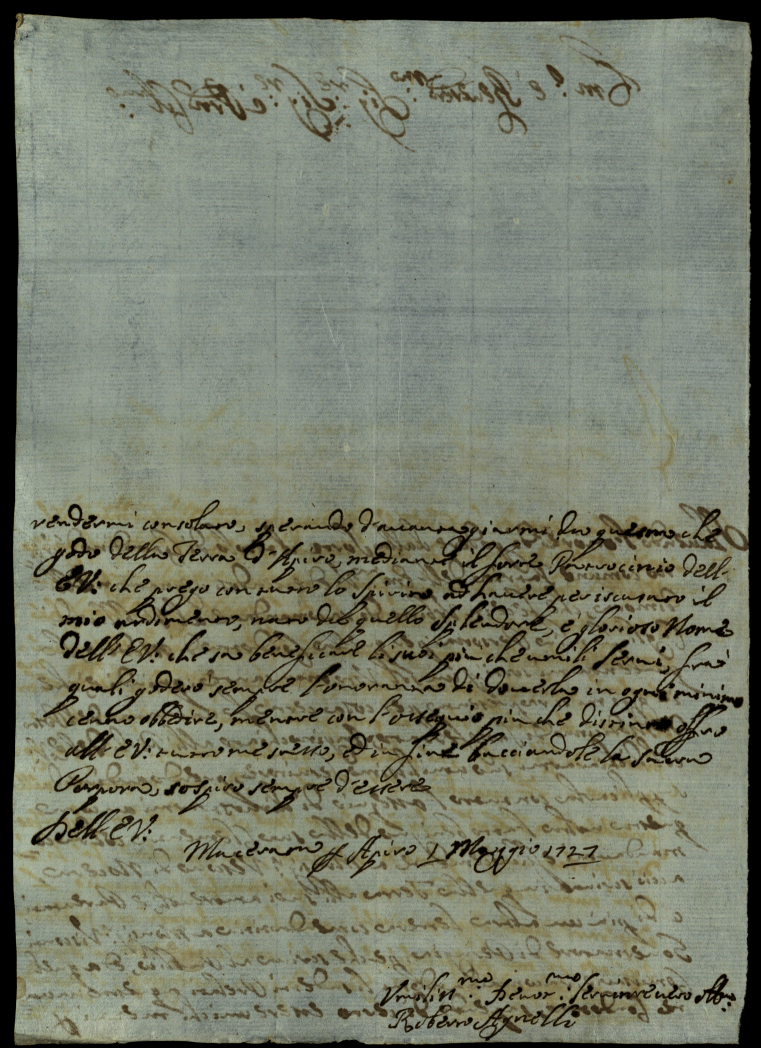 rendermi consolato, sperando d'avantaggiarmi da questo che
godo della Terra d'Apiro, mediante il forte Patrocinio dell'
EV: che prego con tutto lo spirito ad havere per iscusato il
mio ardimento, nato da quello splendore, e glorioso Nome
dell'EV: che sa beneficare li suoi più che umili servi, frà
quali goderò sempre l'onoranza di doverla in ogni minimo
cenno obbedire, mentre con l'ossequio più che distinto offro
all'EV: tutto me stesso, ed in fine bacciandole la sacra
Porpora, sospiro sempre d'essere
Dell'EV:
Macerata p Apiro 1 Maggio 1727
Umiliss:mo Devot:mo Servitore vero Obb:mo
Roberto Agnelli